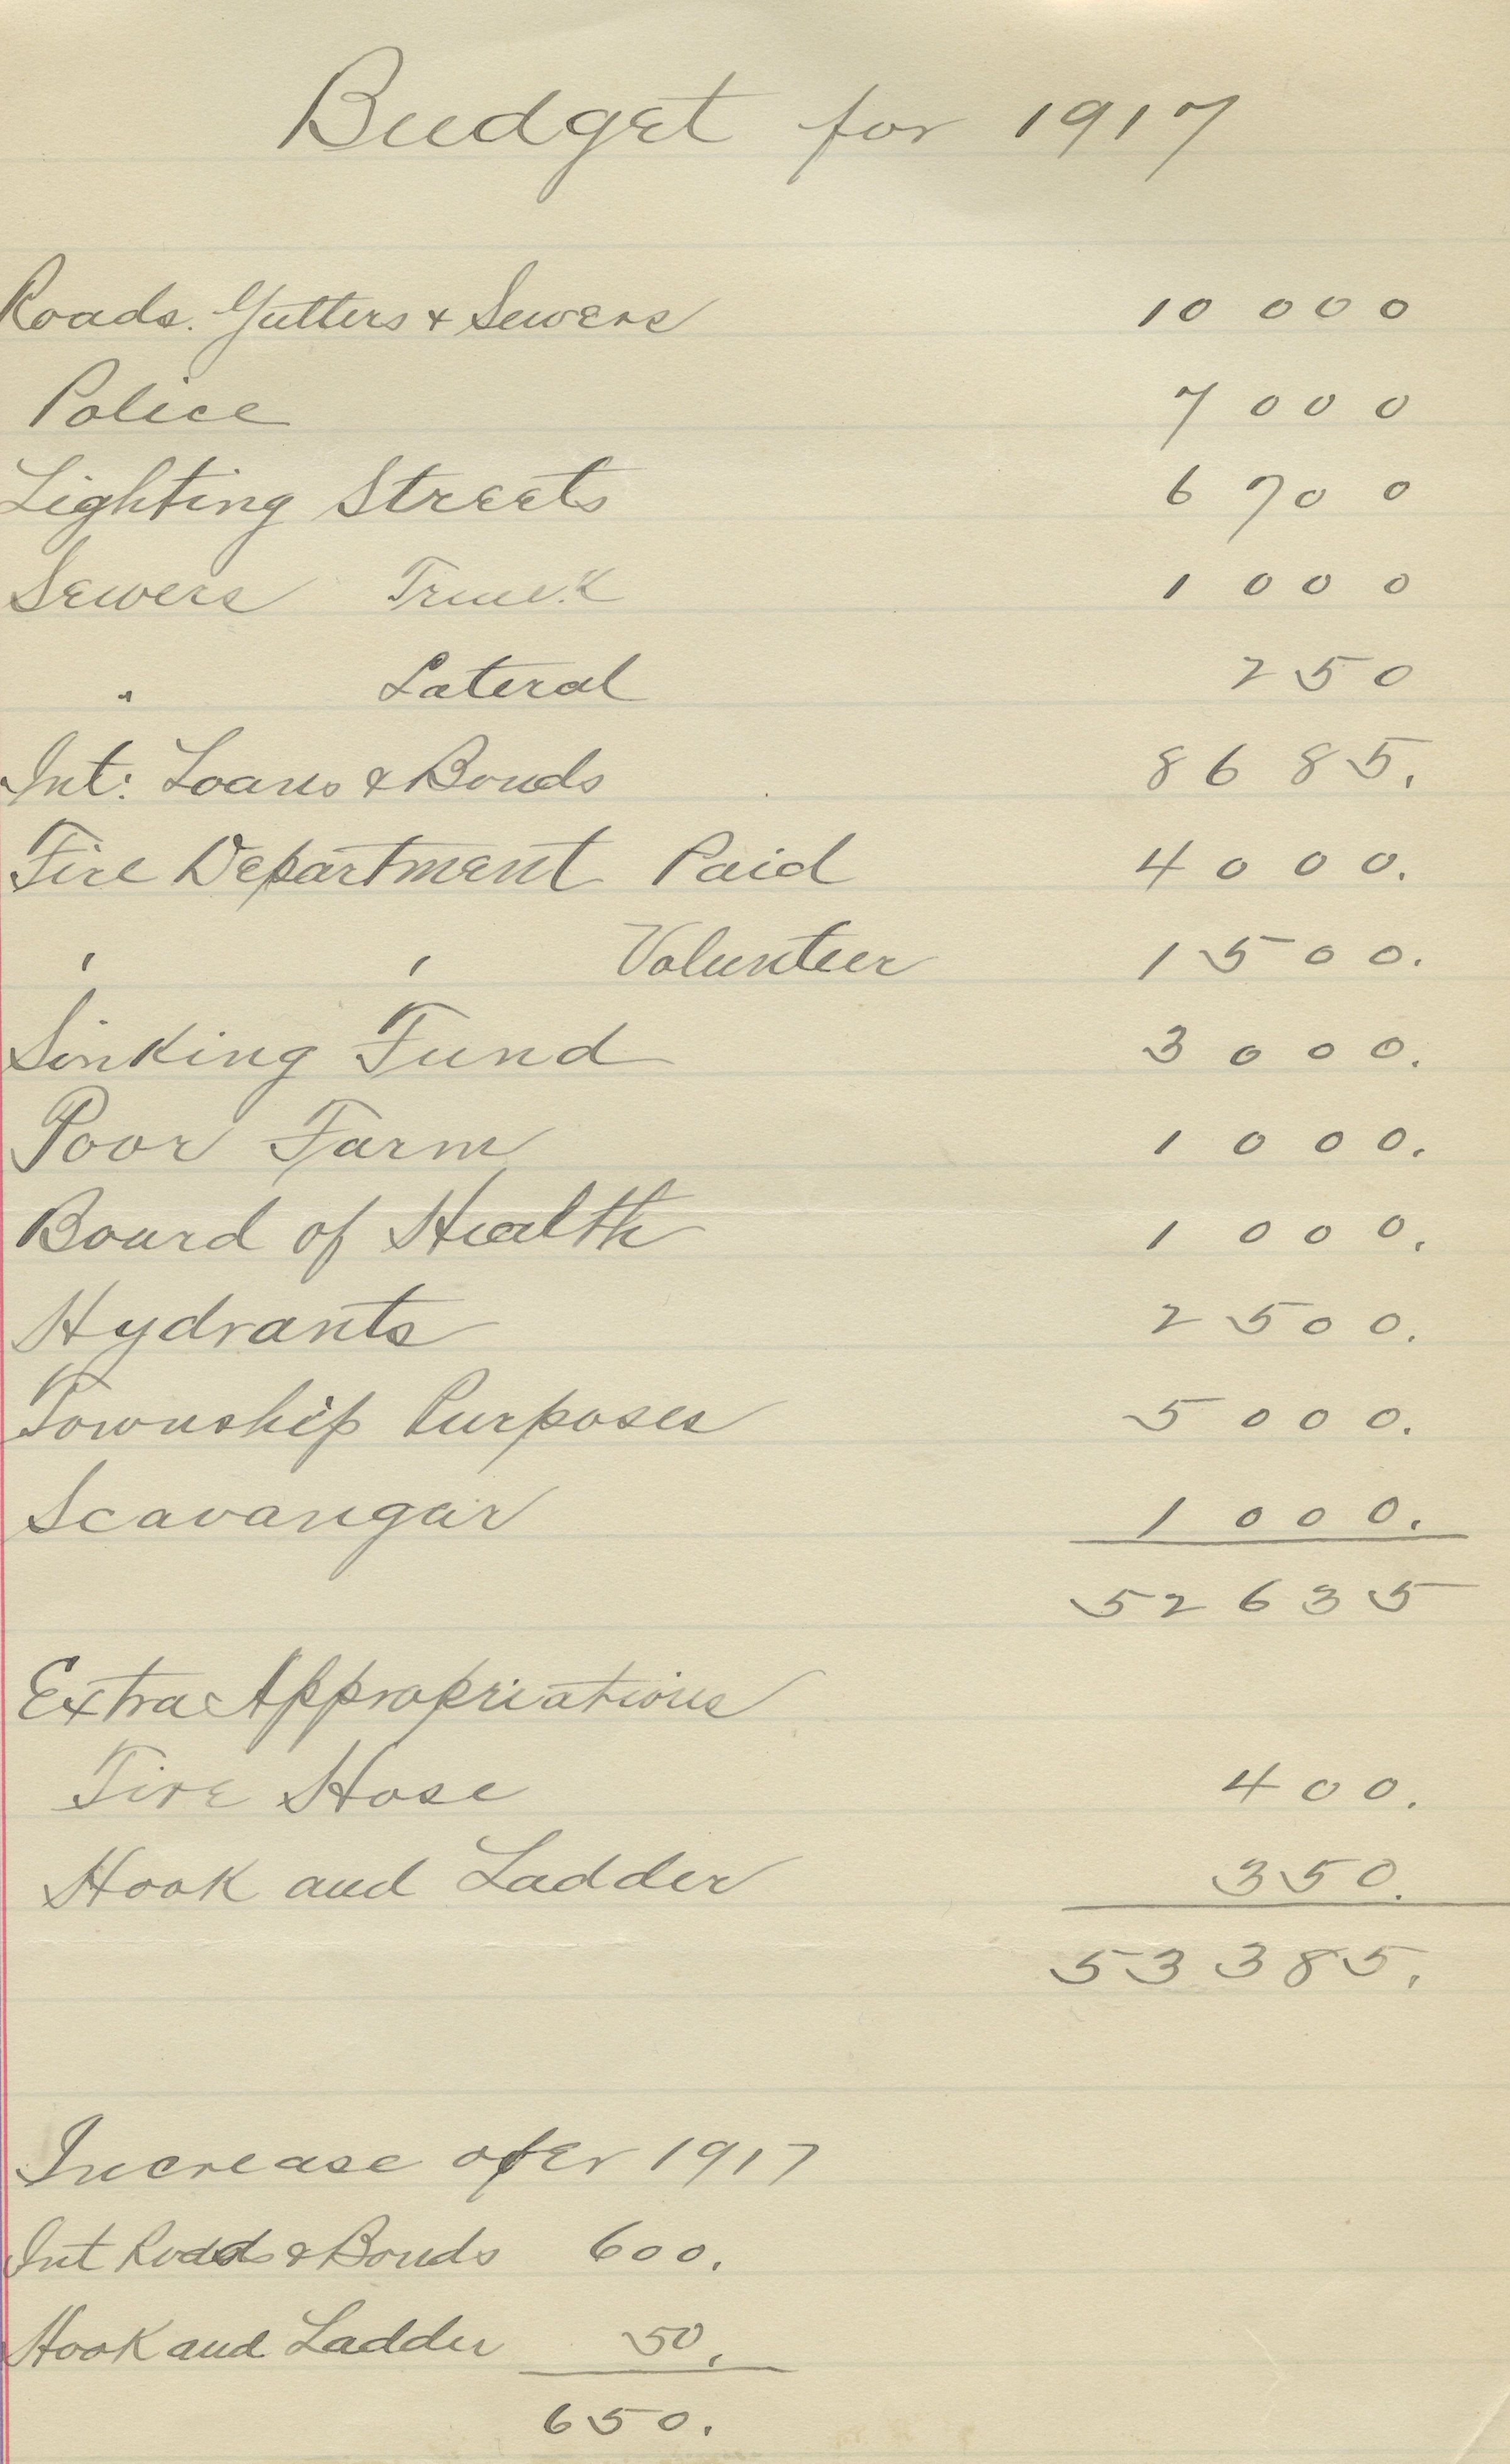 Budget for 1917
Roads. Gutters & Sewers 10 000
Police 7000
Lighting Streets 6700
Sewers Trunk 1000
" Lateral 250
Int: Loans & Bonds 8685.
Fire Department Paid 4000.
' ' Volunteer 1500.
Sinking Fund 3000.
Poor Farm 1000.
Board of Health 1000.
Hydrants 2500.
Township Purposes 5000.
Scavangar 1000.
52635
Extra Appropriations
Fire Hose 400.
Hook and Ladder 350.
53385.
Increase ofer 1917
Int Roads & Bonds 600.
Hook and Ladder 50.
650.